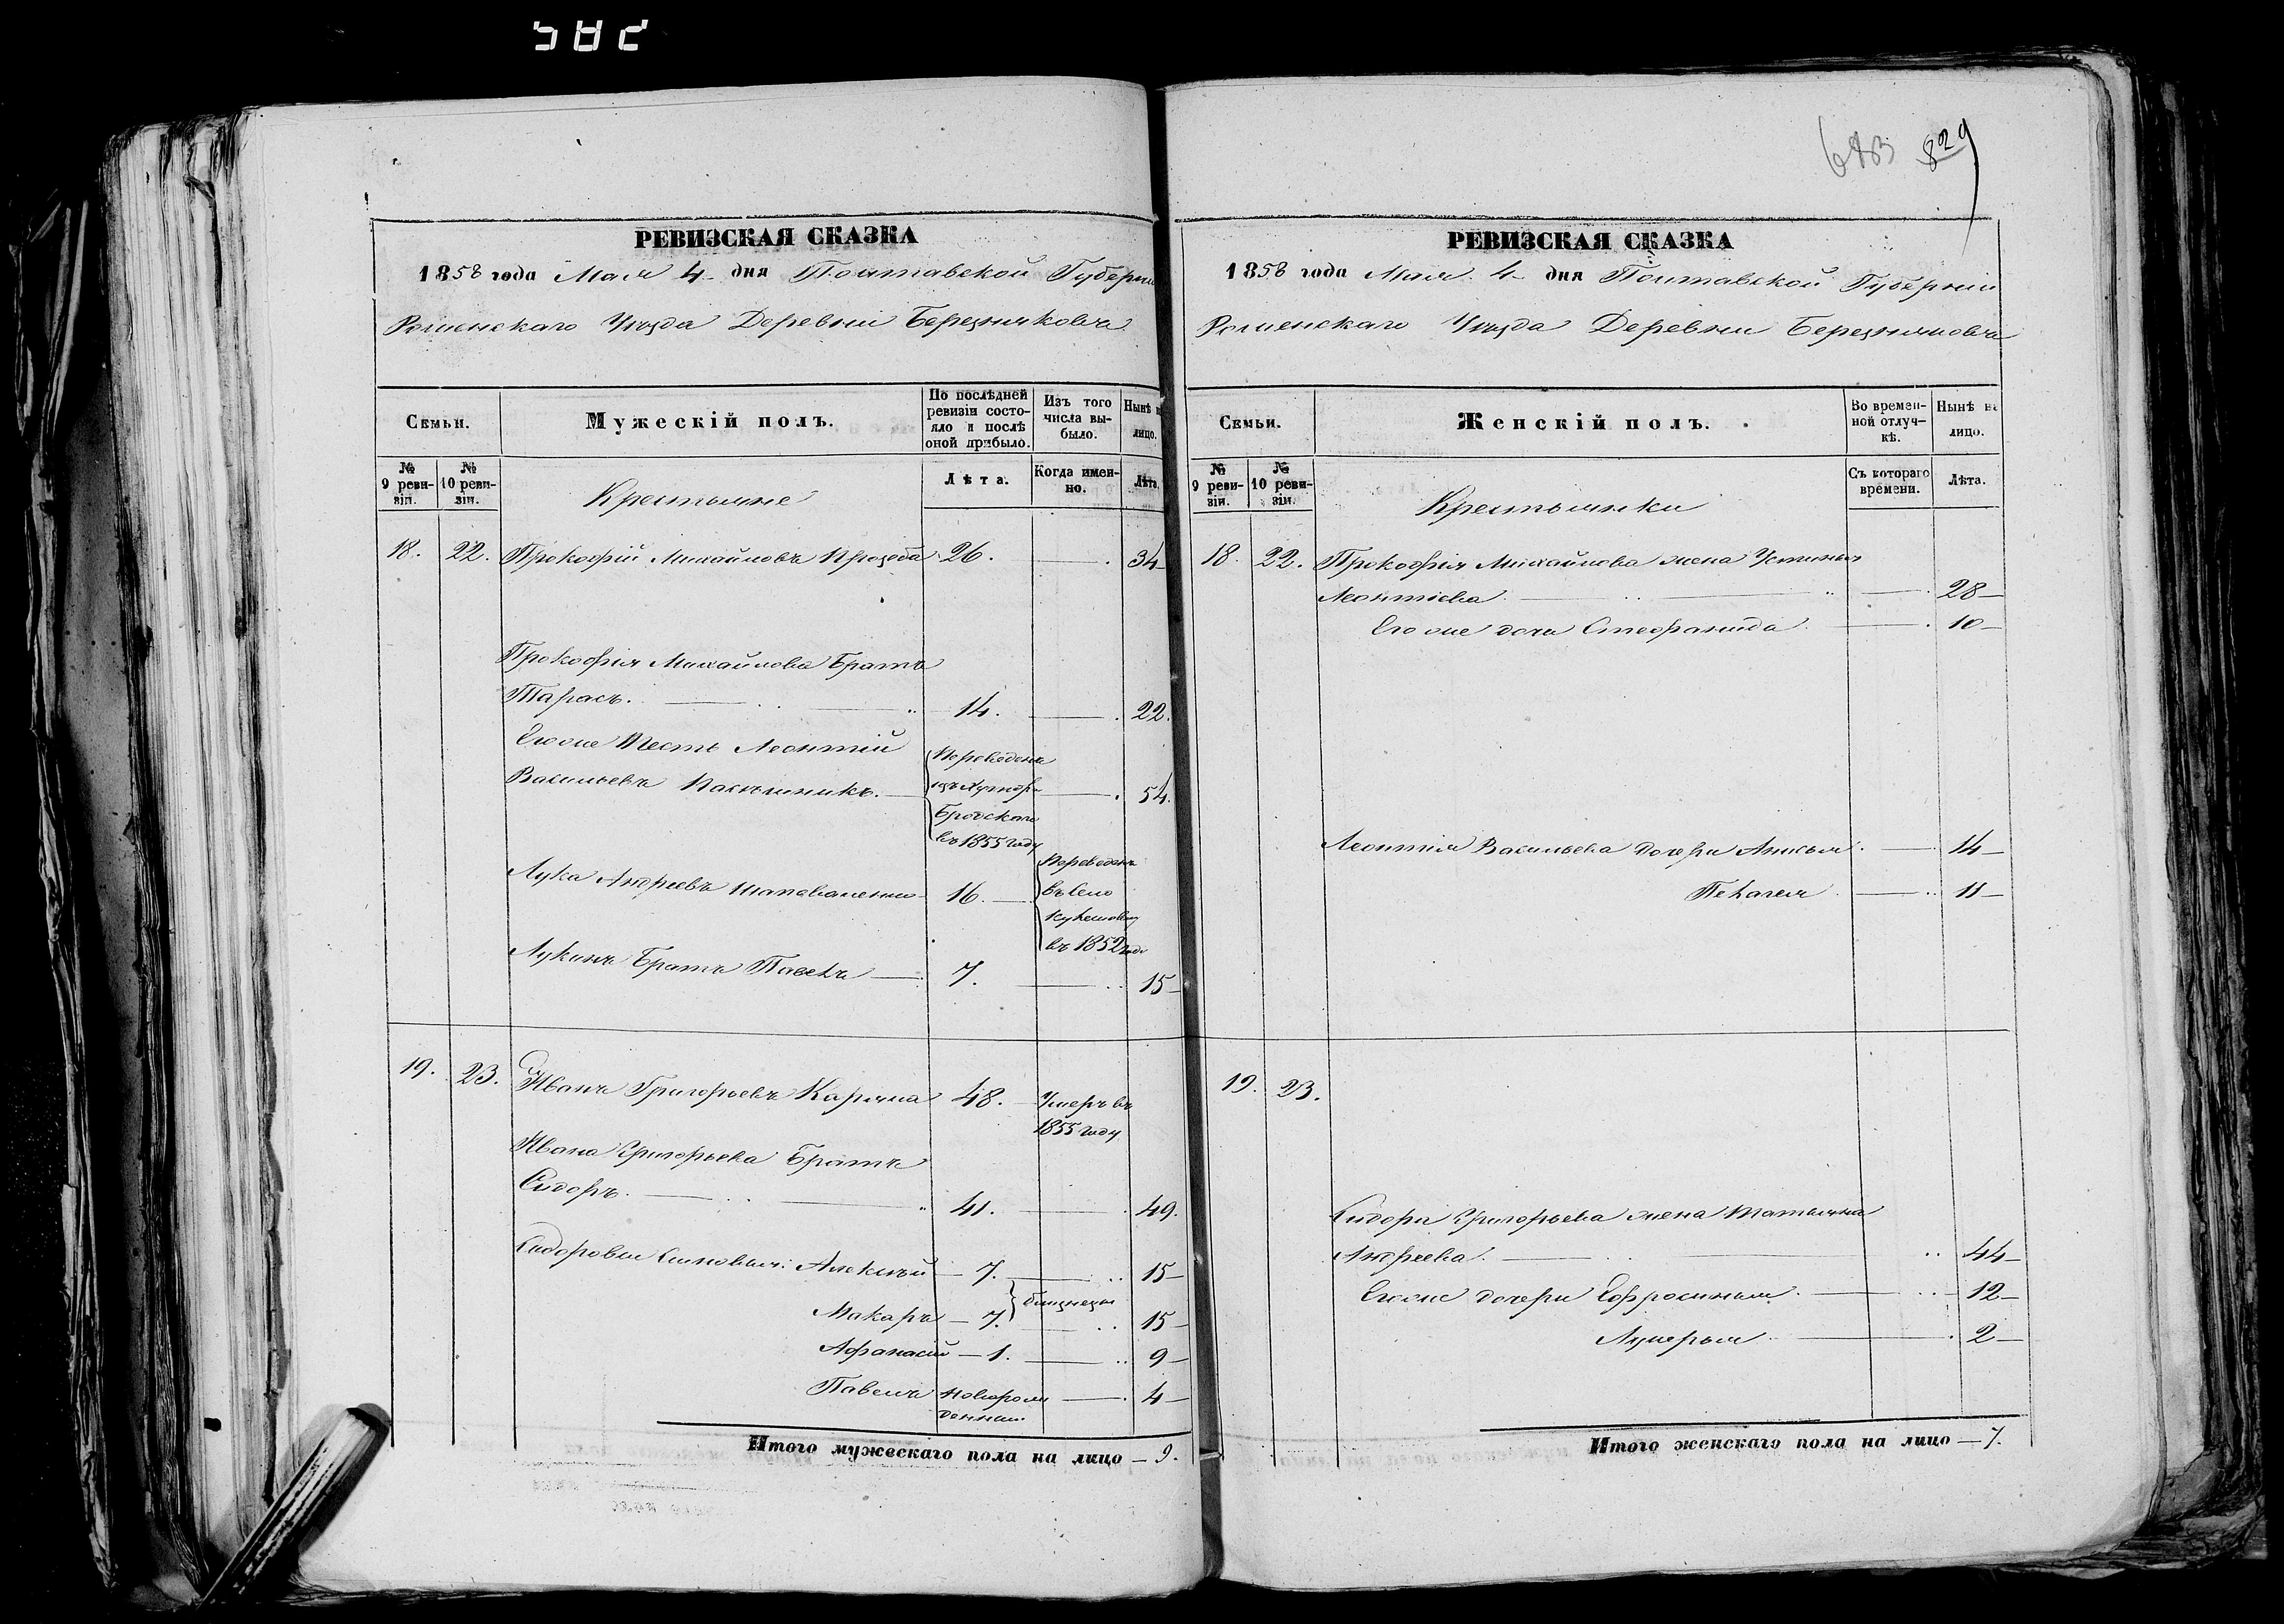 582
683 829
РЕВИЗСКАЯ СКАЗКА
1858 года Мая 4 дня Полтавской Губерніи
Роменскаго Уѣзда Деревни Березняковъ
Семьи.
Мужескій полъ.
По послѣдней ревизіи состояло и послѣ оной прибыло.
Изъ того числа выбыло.
Нынѣ на лицо.
№ 9 ревизіи.
№ 10 ревизіи.
Крестьяне
Лѣта.
Когда именно.
Лѣта.
18. 22. Прокофій Михайловъ 26. — 34
Прокофія Михайлова Братъ
Тарасъ. 14. — 22.
Его же Тесть Леонтій
Васильевъ Пасѣшникъ. — 54.
Переведенъ
изъ Хутора
Бродскаго
въ 1855 году
Лука Андреевъ Шаповаленко 16.
Переведенъ
въ Село
въ 1852 году
Лукинъ Братъ Павелъ 7. — 15
19. 23. Иванъ Григорьевъ Карпина 48. Умеръ въ
1855 году
Ивана Григорьева Братъ
Сидоръ. 41. — 49.
Сидоровы Сыновья: Алексѣй 7. — 15
близнецы
Макаръ 7. — 15
Афанасій 1. — 9
Павелъ новорож
денный — 4
Итого мужескаго пола на лицо — 9.
РЕВИЗСКАЯ СКАЗКА
1858 года Мая 4 дня Полтавской Губерніи
Роменскаго Уѣзда Деревни Березняковъ
Семьи.
Женскій полъ.
Во временной отлучкѣ.
Нынѣ на лицо.
№ 9 ревизіи.
№ 10 ревизіи.
Крестьянки
Съ котораго времени.
Лѣта.
18. 22. Прокофія Михайлова жена Устинья
Леонтіева — 28
Его же дочь Стефанида — 10
Леонтія Васильева дочери Анисья — 14
Пелагея — 11
19. 23.
Сидора Григорьева жена Татьяна
Андреева — 44
Его же дочери Ефросинья — 12
Лукерья — 2
Итого женскаго пола на лицо — 7.